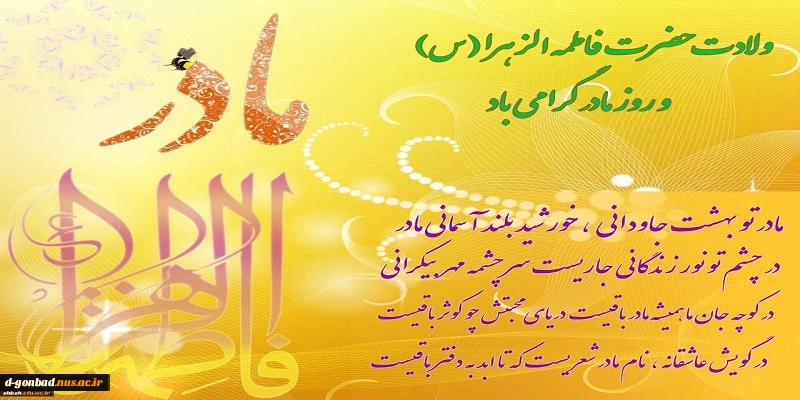 ولادت حضرت فاطمه الزهرا (س)
و روز مادر گرامی باد
مادر
فاطمة الزهراء
مادر تو بهشت جاودانی ، خورشید بلند آسمانی مادر
در چشم تو نور زندگانی جاریست سرچشمه مهر بیکرانی
در کوچه جان ما همیشه مادر باقیست دریای محبتش چو کوثر باقیست
در گویش عاشقانه ، نام مادر شعریست که تا ابد به دفتر باقیست
d-gonbad.nus.ac.ir